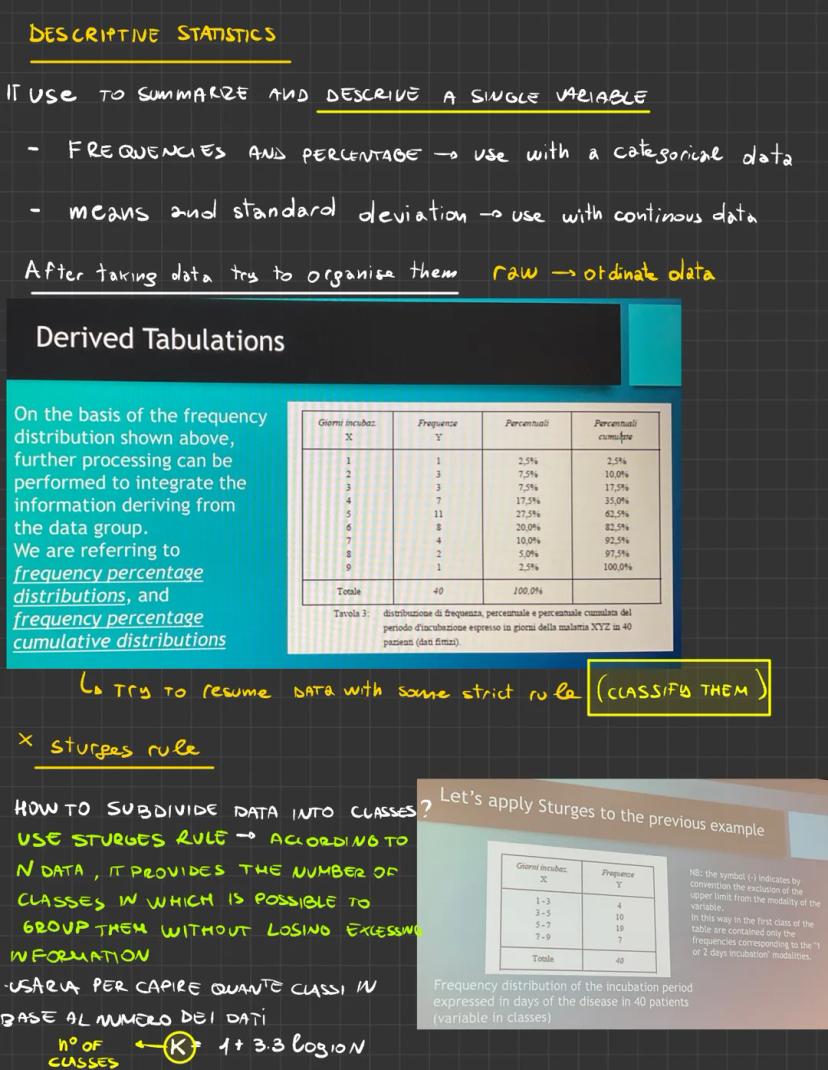 DESCRIPTIVE STATISTICS
IT USE TO SUMMARIZE AND DESCRIVE A SINGLE VARIABLE
- FREQUENCIES AND PERCENTAGE → USE with a categorical data
- means and standard deviation → use with continous data
After taking data try to organise them raw → ordinate data
Derived Tabulations
On the basis of the frequency
distribution shown above,
further processing can be
performed to integrate the
information deriving from
the data group.
We are referring to
frequency percentage
distributions, and
frequency percentage
cumulative distributions
Giorni incubaz. Frequenze Percentuali Percentuali
X Y cumulate
1 1 2,5% 2,5%
2 3 7,5% 10,0%
3 3 7,5% 17,5%
4 7 17,5% 35,0%
5 11 27,5% 62,5%
6 8 20,0% 82,5%
7 4 10,0% 92,5%
8 2 5,0% 97,5%
9 1 2,5% 100,0%
Totale 40 100,0%
Tavola 3: distribuzione di frequenza, percentuale e percentuale cumulata del
periodo d'incubazione espresso in giorni della malattia XYZ in 40
pazienti (dati fittizi).
↳ TRY TO resume DATA with some strict rule (CLASSIFY THEM)
× sturges rule
HOW TO SUBDIVIDE DATA INTO CLASSES?
USE STURGES RULE → ACCORDING TO
N DATA, IT PROVIDES THE NUMBER OF
CLASSES IN WHICH IS POSSIBLE TO
GROUP THEM WITHOUT LOSING EXCESSING
INFORMATION
-USARLA PER CAPIRE QUANTE CLASSI IN
BASE AL NUMERO DEI DATI
n° OF CLASSES ← K = 1 + 3.3 log10 N
Let's apply Sturges to the previous example
Giorni incubaz. Frequenze
X Y
1-3 4
3-5 10
5-7 19
7-9 7
Totale 40
NB: the symbol (-) indicates by
convention the exclusion of the
upper limit from the modality of the
variable.
In this way in the first class of the
table are contained only the
frequencies corresponding to the "1
or 2 days incubation" modalities.
Frequency distribution of the incubation period
expressed in days of the disease in 40 patients
(variable in classes)